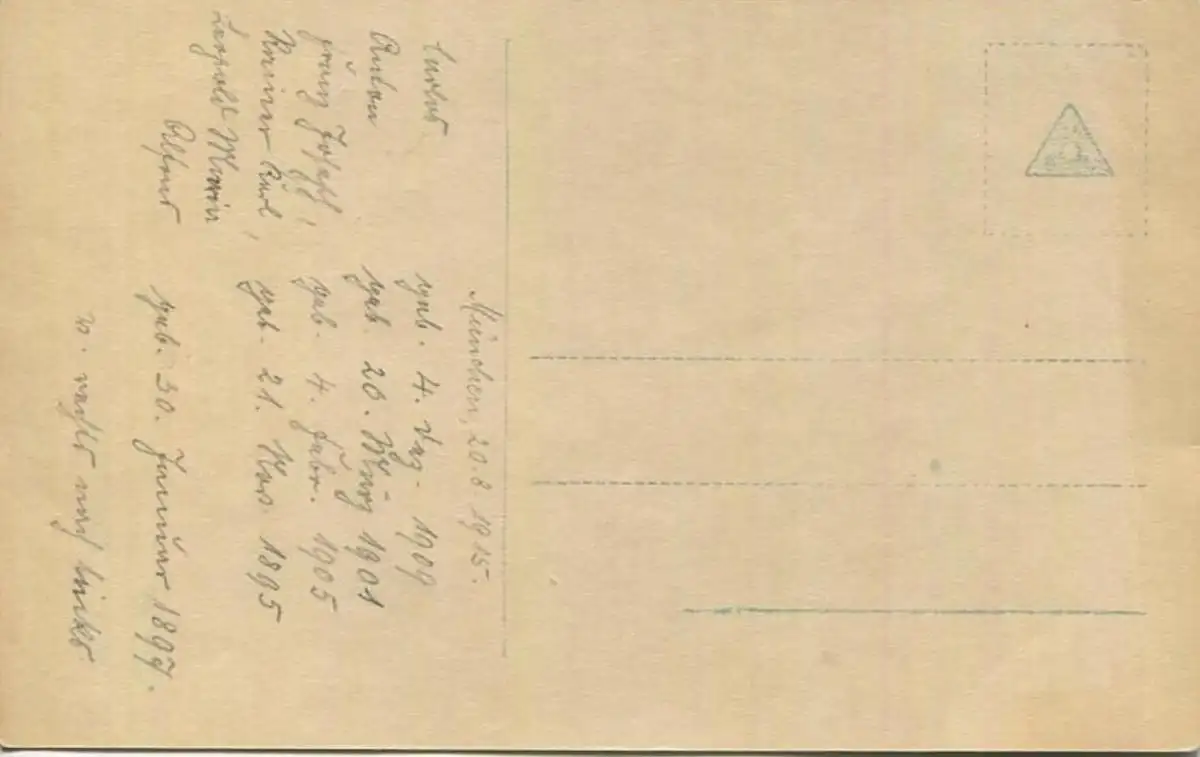 München, 20.8 1915.
geb. 4. Dez. 1909
Anton geb. 20. März 1901
Franz Josef, geb. 4. Febr. 1905
Rainer Karl, geb. 21. Nov. 1895
Leopold Maria
Alfons geb. 30. Januar 1897.
v. rechts nach links